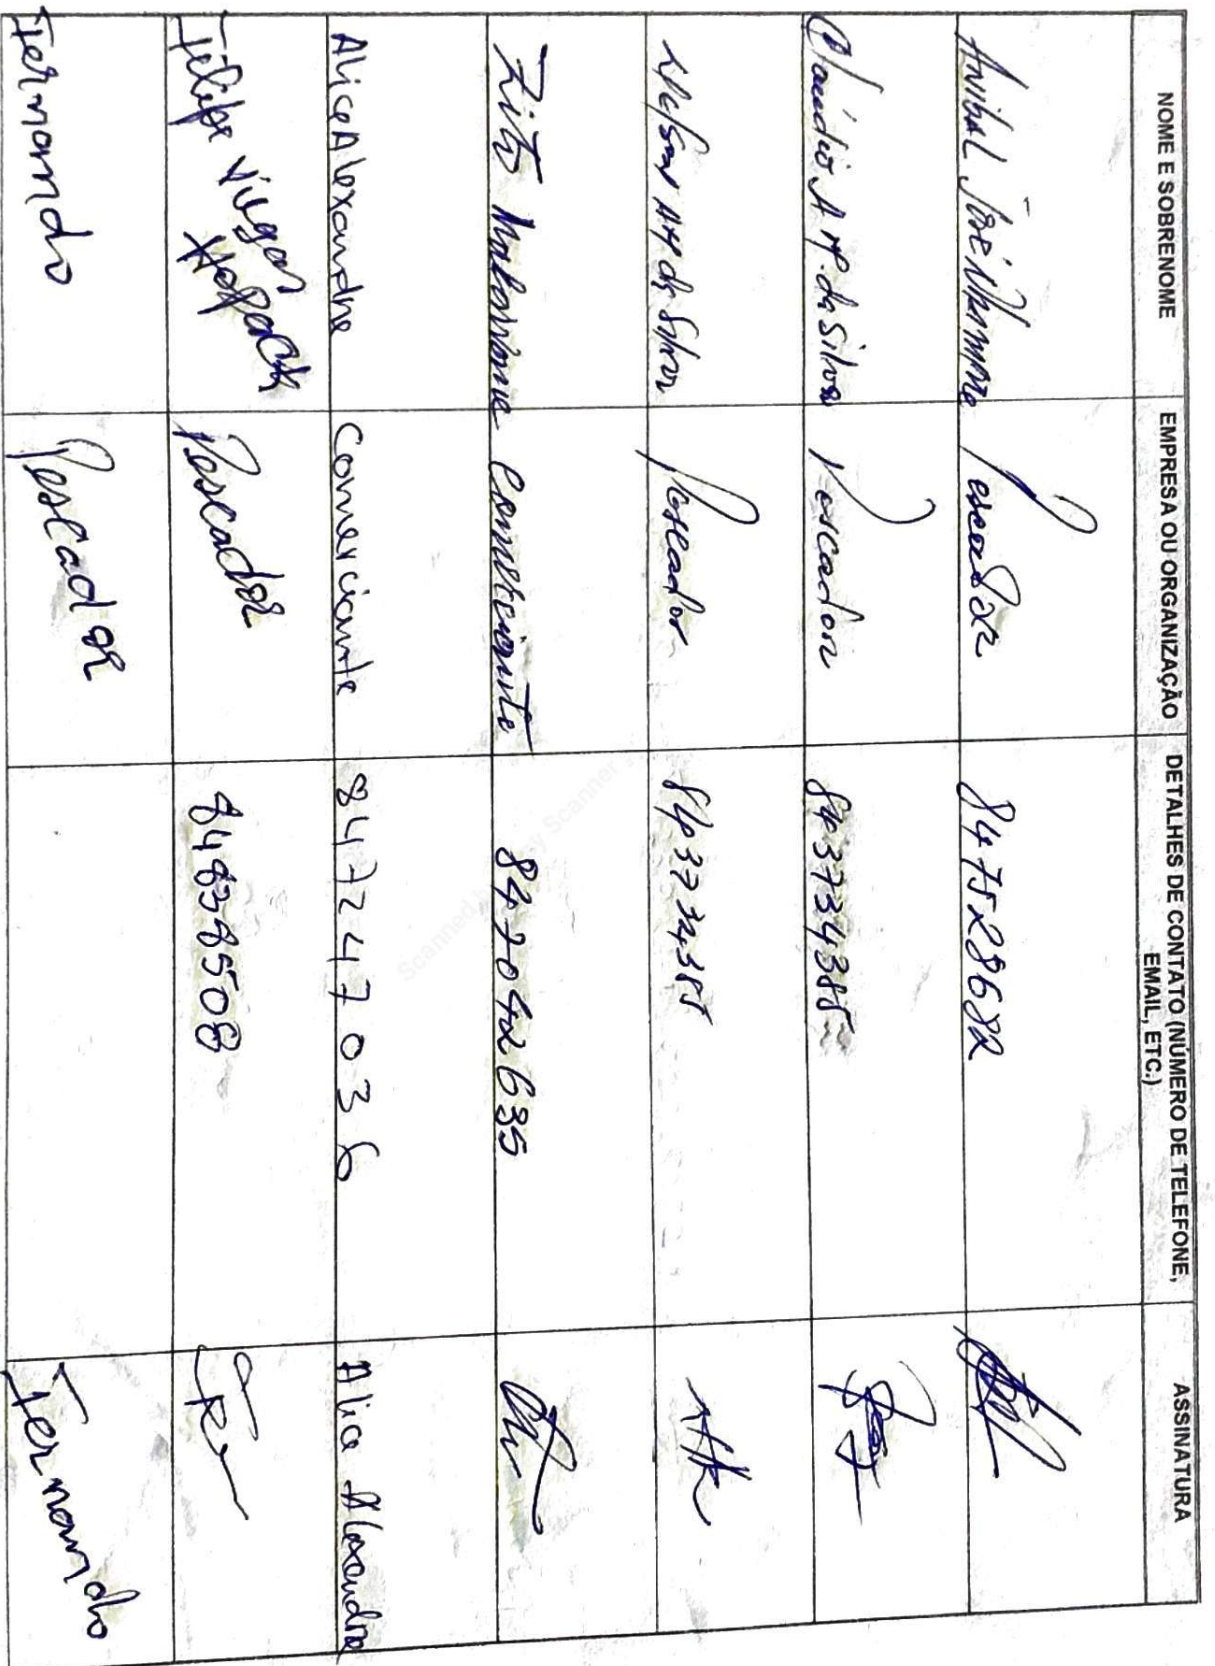 NOME E SOBRENOME EMPRESA OU ORGANIZAÇÃO DETALHES DE CONTATO (NÚMERO DE TELEFONE, EMAIL, ETC.) ASSINATURA
Anibal José Pescador 847528682
Claudio A M. da Silva Pescador 843734385
da Silva Pescador 843734385
Zito Comerciante 847042635
Alice Alexandre Comerciante 847247036 Alice Alexandre
Filipe Pescador 848385508
Fernando Pescador Fernando
Scanned by Scanner